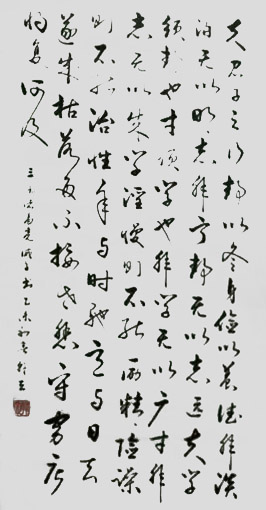 夫君子之行静以修身俭以养德非淡
泊无以明志非宁静无以志远夫学
须静也才须学也非学无以广才非
志无以成学淫慢则不能励精险躁
则不能治性年与时驰意与日去
遂成枯落多不接世悲守穷庐
将复何及